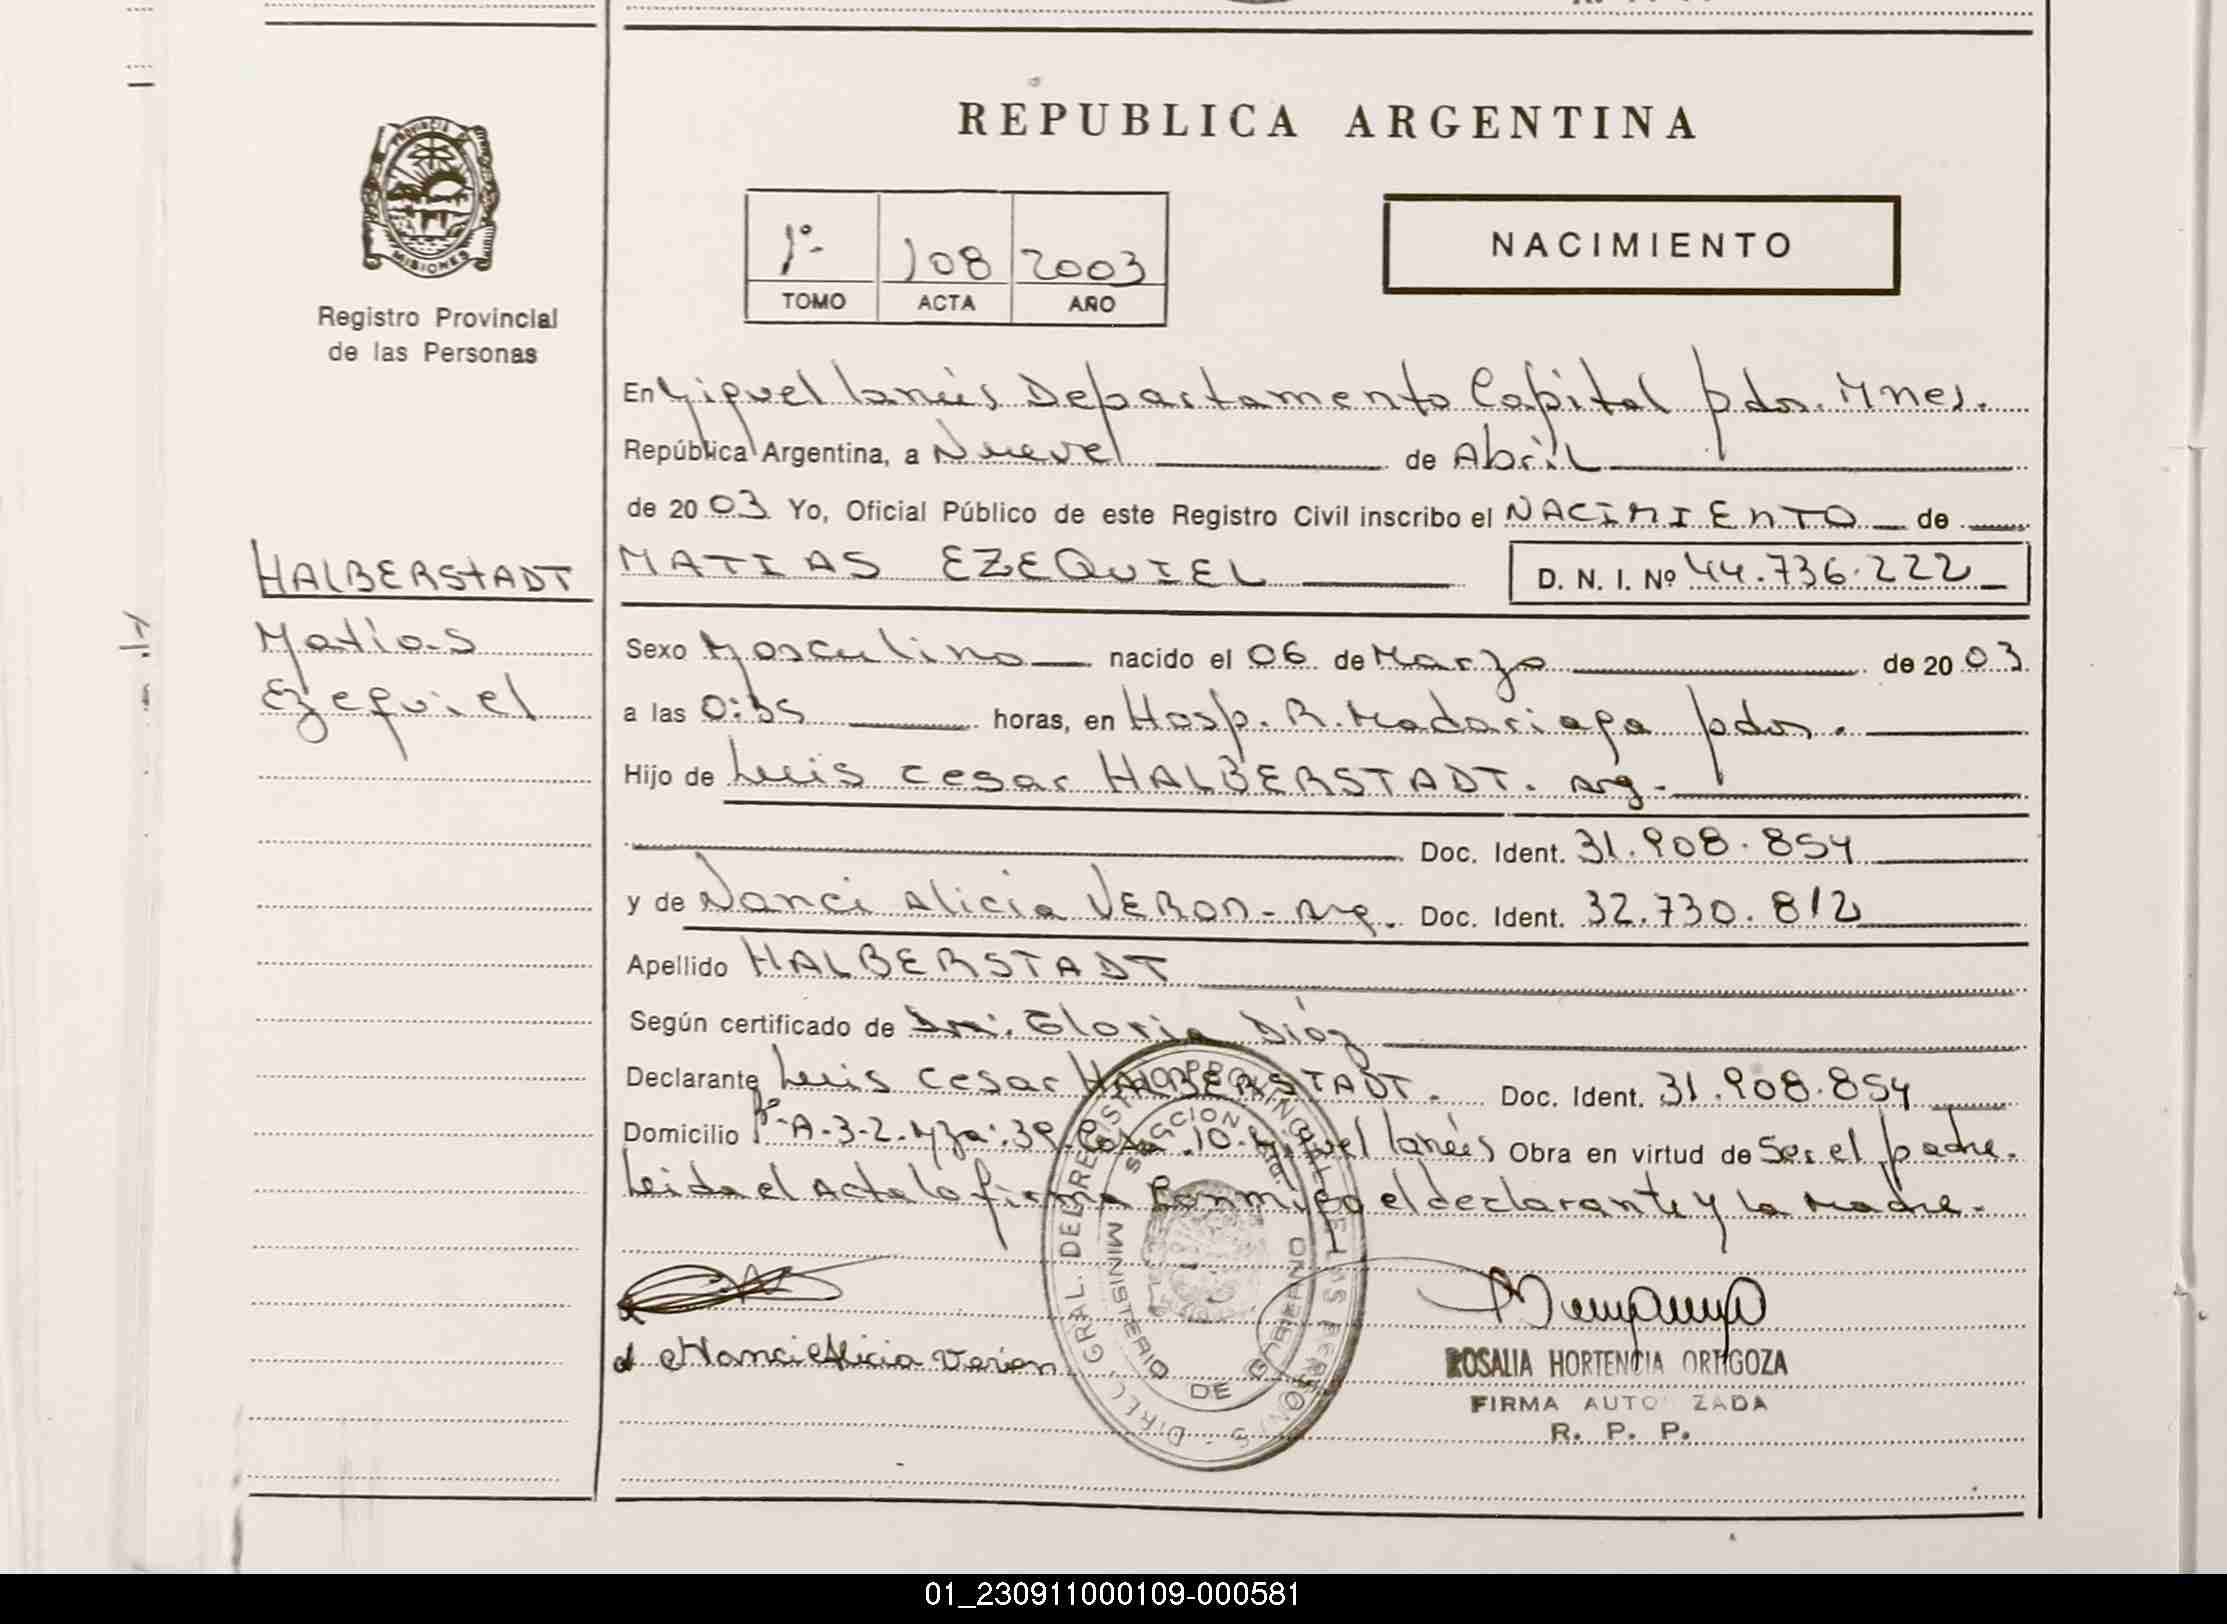 REPUBLICA ARGENTINA
PROVINCIA DE
MISIONES
Registro Provincial
de las Personas
1º-
108
2003
TOMO
ACTA
AÑO
NACIMIENTO
En Miguel Lanús Departamento Capital pdas. Mnes.
República Argentina, a Nueve de Abril
de 2003 Yo, Oficial Público de este Registro Civil inscribo el NACIMIENTO de
HALBERSTADT
Matías
Ezequiel
MATIAS EZEQUIEL D. N. I. Nº 44.736.222
Sexo Masculino nacido el 06 de Marzo de 2003
a las 0:35 horas, en Hosp. R. Madariaga pdas.
Hijo de Luis Cesar HALBERSTADT. Arg.
Doc. Ident. 31.908.854
y de Nanci Alicia VERON - Arg. Doc. Ident. 32.730.812
Apellido HALBERSTADT
Según certificado de Dra. Gloria Díaz
Declarante Luis Cesar HALBERSTADT. Doc. Ident. 31.908.854
Domicilio A-3-2. Mza: 39. Casa. 10. Miguel Lanús Obra en virtud de Ser el padre.
Leida el Acta la firma conmigo el declarante y la Madre.
Nanci Alicia Veron
ROSALIA HORTENCIA ORTIGOZA
FIRMA AUTO ZADA
R. P. P.
DIREC. GRAL. DEL REGISTRO PROVINCIAL DE LAS PERSONAS
MINISTERIO DE GOBIERNO
01_230911000109-000581